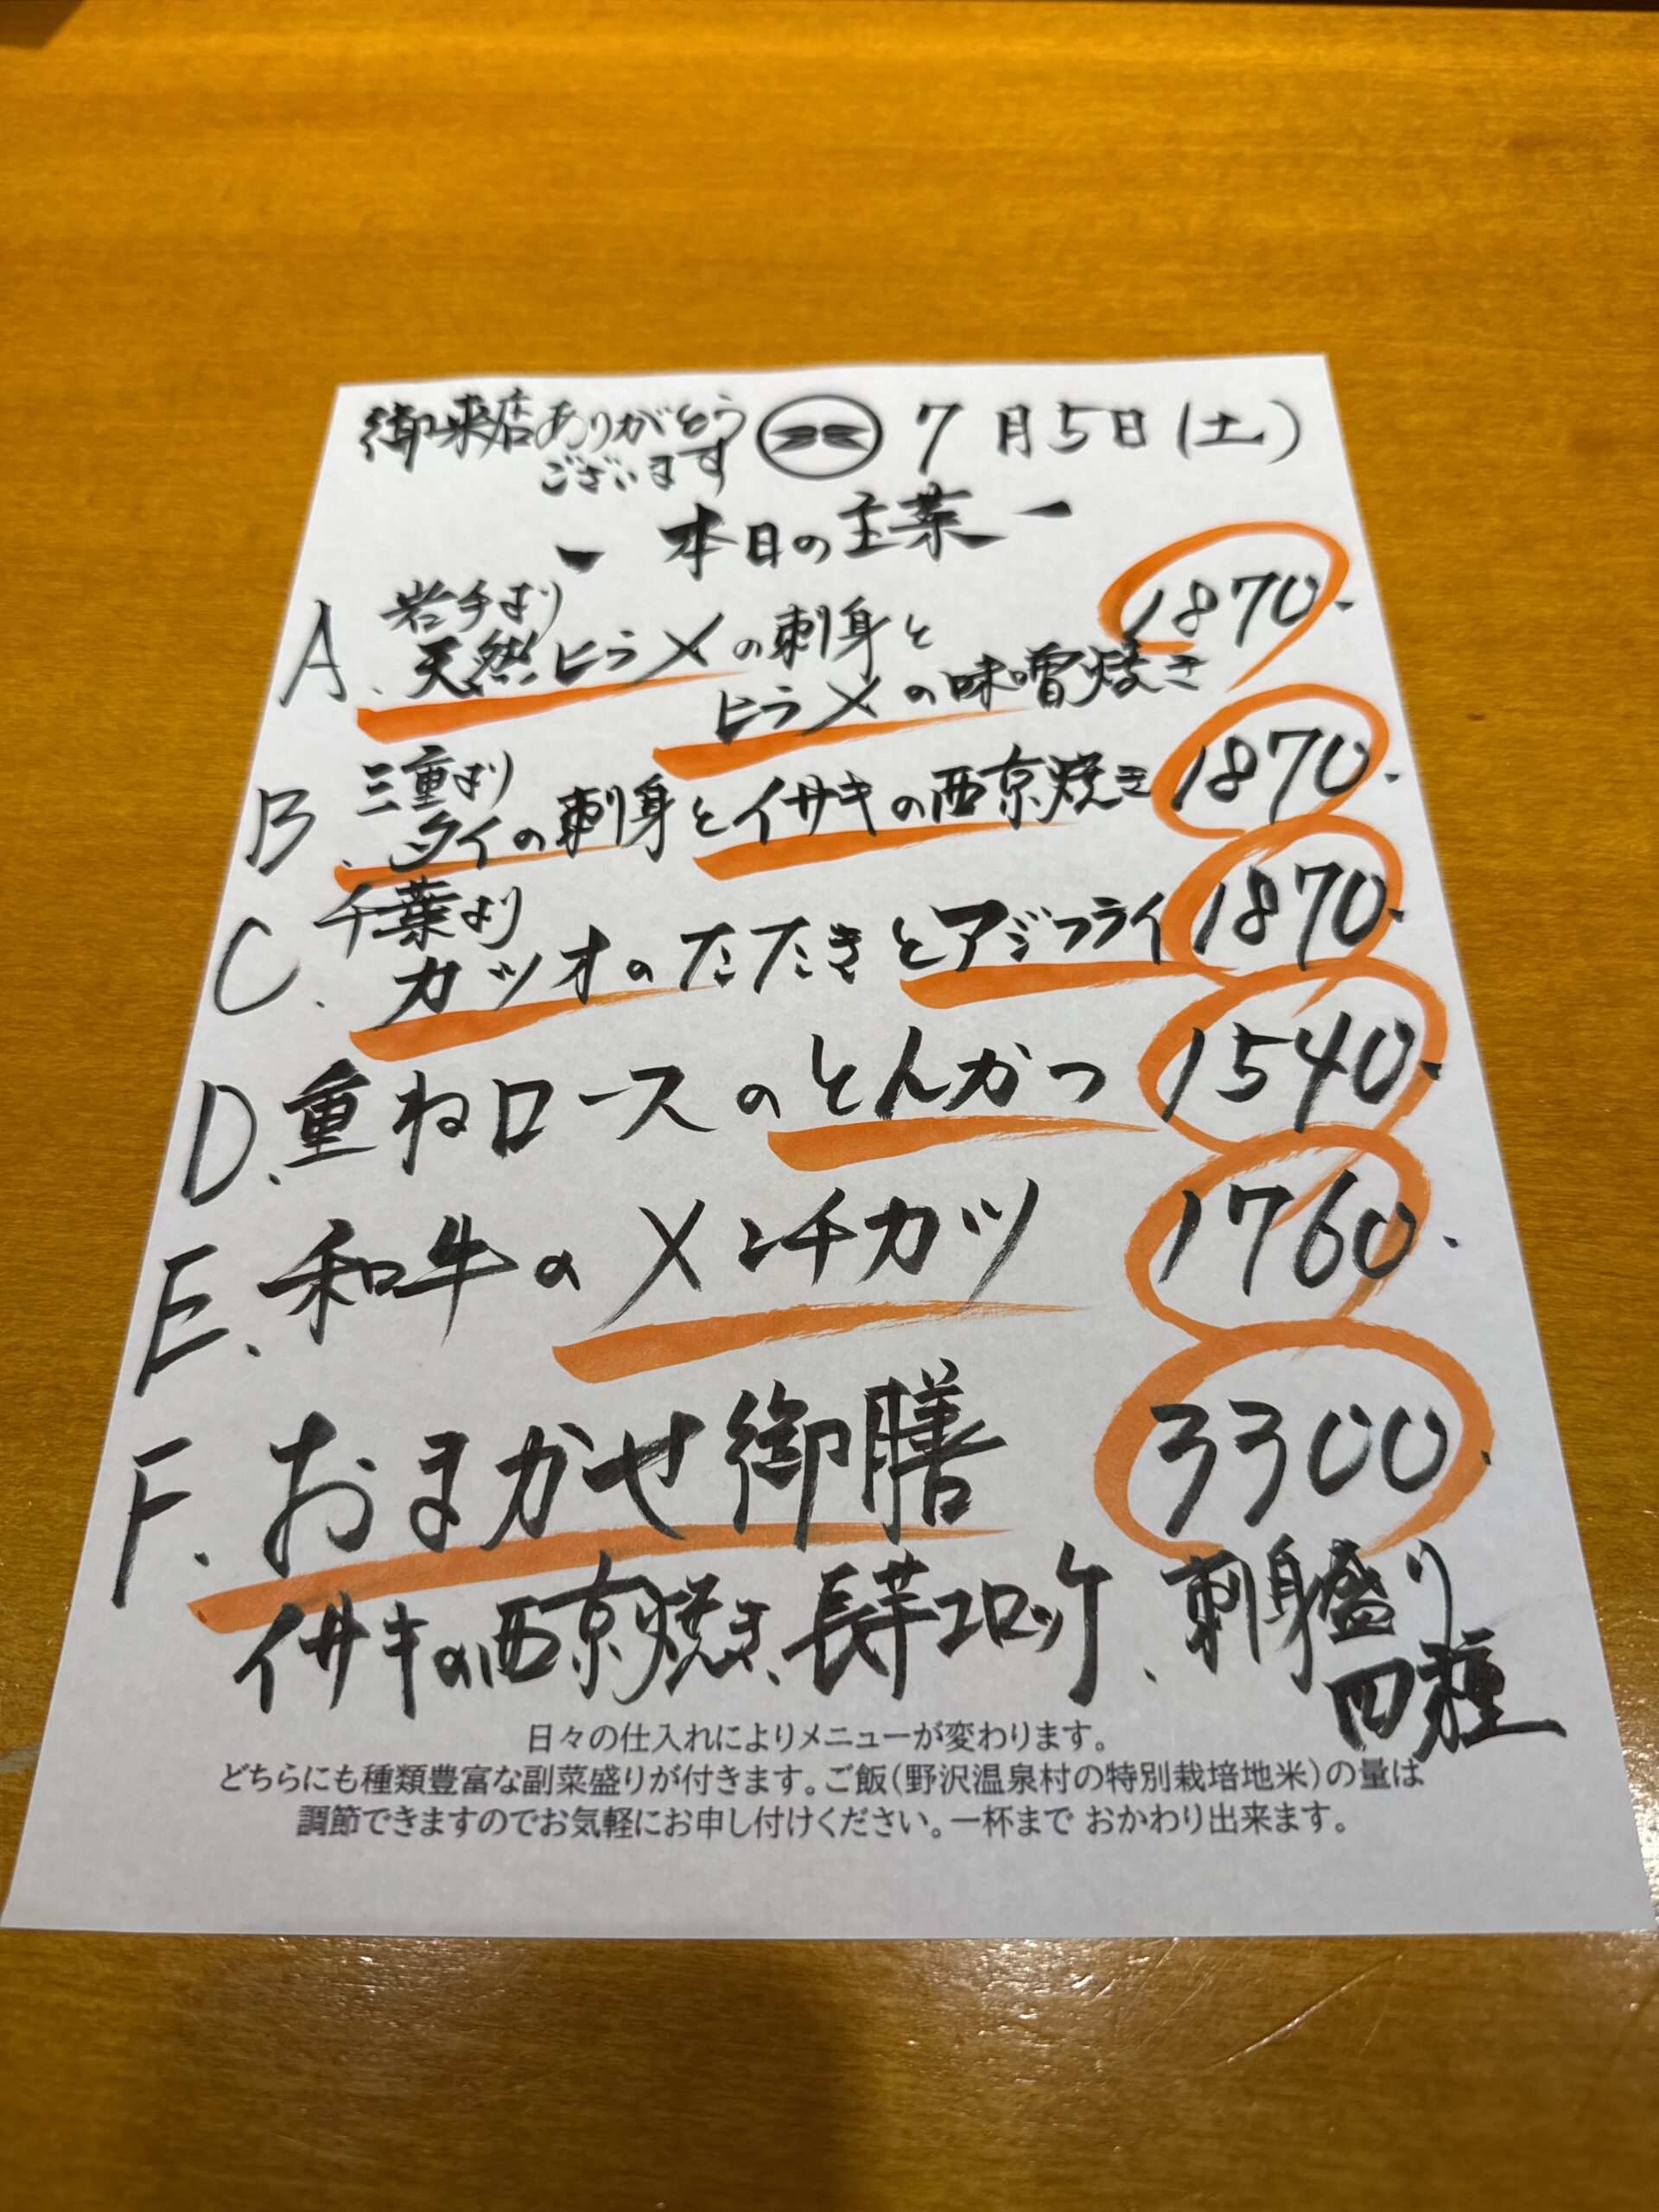 御来店ありがとう
ございます
7月5日(土)
- 本日の主菜 -
A. 岩手より
天然ヒラメの刺身と
ヒラメの味噌焼き 1870.
B. 三重より
タイの刺身とイサキの西京焼き 1870.
C. 千葉より
カツオのたたきとアジフライ 1870.
D. 重ねロースのとんかつ 1540.
E. 和牛のメンチカツ 1760.
F. おまかせ御膳 3300.
イサキの西京焼き、長芋コロッケ、刺身盛り
四種
日々の仕入れによりメニューが変わります。
どちらにも種類豊富な副菜盛りが付きます。ご飯(野沢温泉村の特別栽培地米)の量は
調節できますのでお気軽にお申し付けください。一杯まで おかわり出来ます。